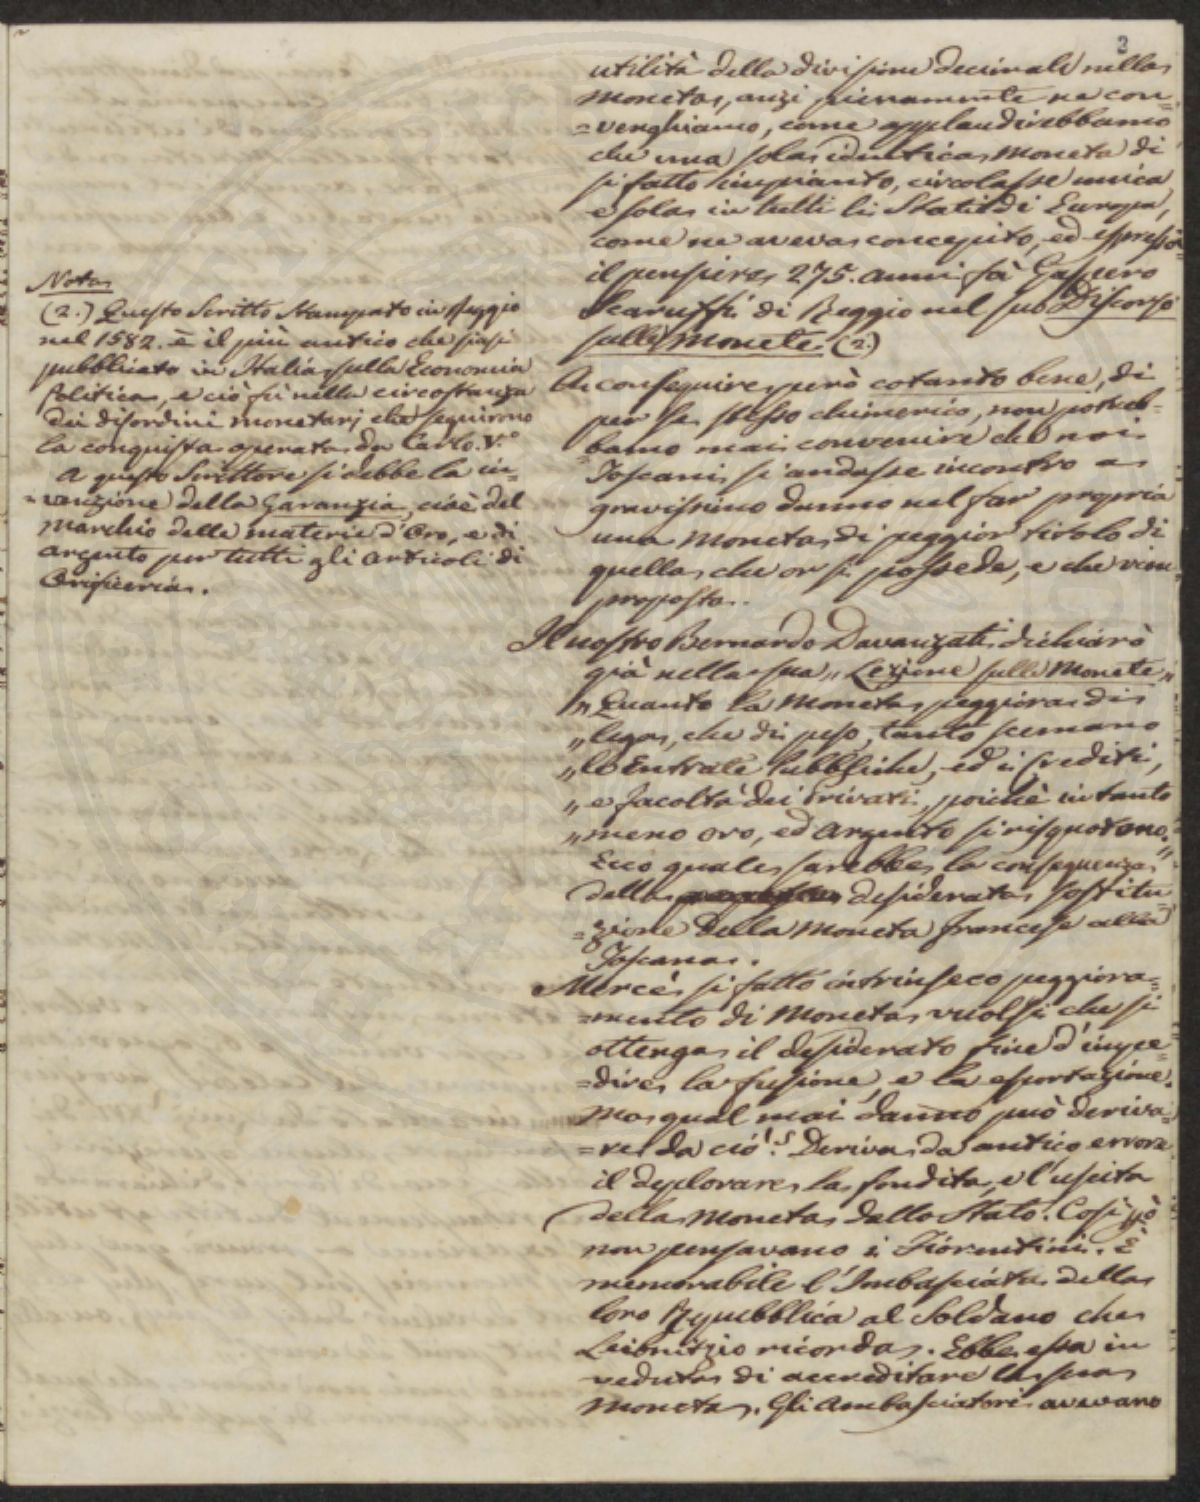 3
utilità della divisione decimale nella
Moneta, anzi pienamente ne con=
=venghiamo, come applaudirebbamo
che una sola identica Moneta di
si fatto impianto, circolasse unica
e sola in tutti li Stati di Europa,
come ne aveva concepito, ed espresso
il pensiero 275. anni fà Gaspero
Scaruffi di Reggio nel suo Discorso
sulle Monete. (2.)
A conseguire però cotanto bene, di
per se stesso chimerico, non potreb=
=bamo mai convenire che noi
Toscani si andasse incontro a
gravissimo danno nel far propria
una Moneta di peggior titolo di
quella che or si possede, e che vien
proposta.
Il nostro Bernardo Davanzati dichiarò
già nella sua „ Lezione sulle Monete „
„ Quanto la Moneta peggiora di
„ lega, che di peso, tanto scemano
„ le Entrate Pubbliche, ed i Crediti,
„ e facoltà dei Privati, poichè in tanto
„ meno oro, ed Argento si risquotono. „
Ecco quale sarebbe la conseguenza
della desiderata sostitu=
=zione della Moneta francese alla
Toscana.
Mercè si fatto intrinseco peggiora=
=mento di Moneta vuolsi che si
ottenga il desiderato fine d'impe=
=dire la fusione, e la esportazione.
Ma qual mai danno può deriva=
=re da ciò? Deriva da antico errore
il deplorare la fondita, e l'uscita
della Moneta dallo Stato. Così però
non pensavano i Fiorentini. È
memorabile l'Imbasciata della
loro Repubblica al Soldano che
Leibnitzio ricorda. Ebbe essa in
veduta di accreditare la sua
Moneta. Gli Ambasciatori avevano
Nota
(2.) Questo Scritto Stampato in Reggio
nel 1582. è il più antico che siasi
pubblicato in Italia sulla Economia
Politica, e ciò fù nella circostanza
dei disordini monetarj che seguirono
la conquista operata da Carlo V.°
A questo Scrittore si debbe la in=
=venzione della Garanzia, cioè del
Marchio delle materie d'Oro, e di
Argento per tutti gli articoli di
Orificeria.